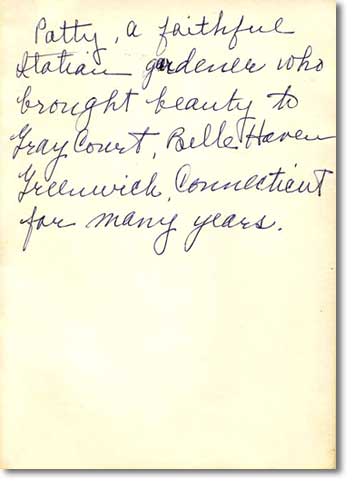 Patty, a faithful
Italian gardener who
brought beauty to
Gray Court, Belle Haven
Greenwich, Connecticut
for many years.